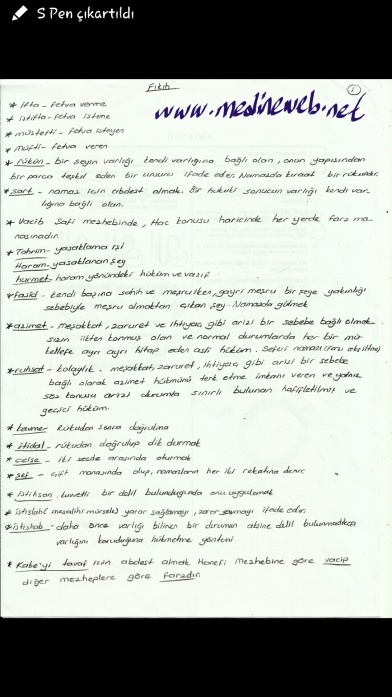 S Pen çıkartıldı
Fıkıh
1
www.medineweb.net
* İfta - Fetva verme
* istifta - fetva isteme
* müstefti - fetva isteyen
* Müfti - fetva veren
* rükün - bir şeyin varlığı kendi varlığına bağlı olan, onun yapısından
bir parça teşkil eden bir unsuru ifade eder. Namazda kıraat bir rükündür.
* şart - namaz için abdest almak. Bir hukuki sonucun varlığı kendi var-
lığına bağlı olan.
* Vacib Şafi mezhebinde, Hac konusu haricinde her yerde farz ma-
nasınadır.
* Tahrim - yasaklama işi
Haram - yasaklanan şey
hurmet - haram yönündeki hüküm ve vasıf
* fasid - kendi başına sahih ve meşru iken, gayri meşru bir şeye yakınlığı
sebebiyle meşru olmaktan çıkan şey. Namazda gülmek
* azimet - meşakkat, zaruret ve ihtiyaç gibi arizi bir sebebe bağlı olmak
sızın ilkten konmuş olan ve normal durumlarda her bir mü
kellefe ayrı ayrı hitap eden asli hüküm. Seferi namazı
* ruhsat - kolaylık. meşakkat, zaruret, ihtiyaç gibi arizi bir sebebe
bağlı olarak azimet hükmünü terk etme imkanı veren ve yalnız
söz konusu arizi durumla sınırlı bulunan hafifletilmiş ve
geçici hüküm.
* kavme rükudan sonra doğrulma
* itidal - rükudan doğrulup dik durmak
* celse - iki secde arasında oturmak
* şef' - çift manasında olup, namazların her iki rekatına denir.
* istihsan kuvvetli bir delil bulunduğunda onu uygulamak
* istislah (mesalihi mürsele) yarar sağlamayı, zarar savmayı ifade eder.
* istishab - daha önce varlığı bilinen bir durumun aksine delil bulunmadıkça
varlığını koruduğuna hükmetme yöntemi
* Kabe'yi tavaf için abdest almak Hanefi Mezhebine göre vacip
diğer mezheplere göre farzdır.